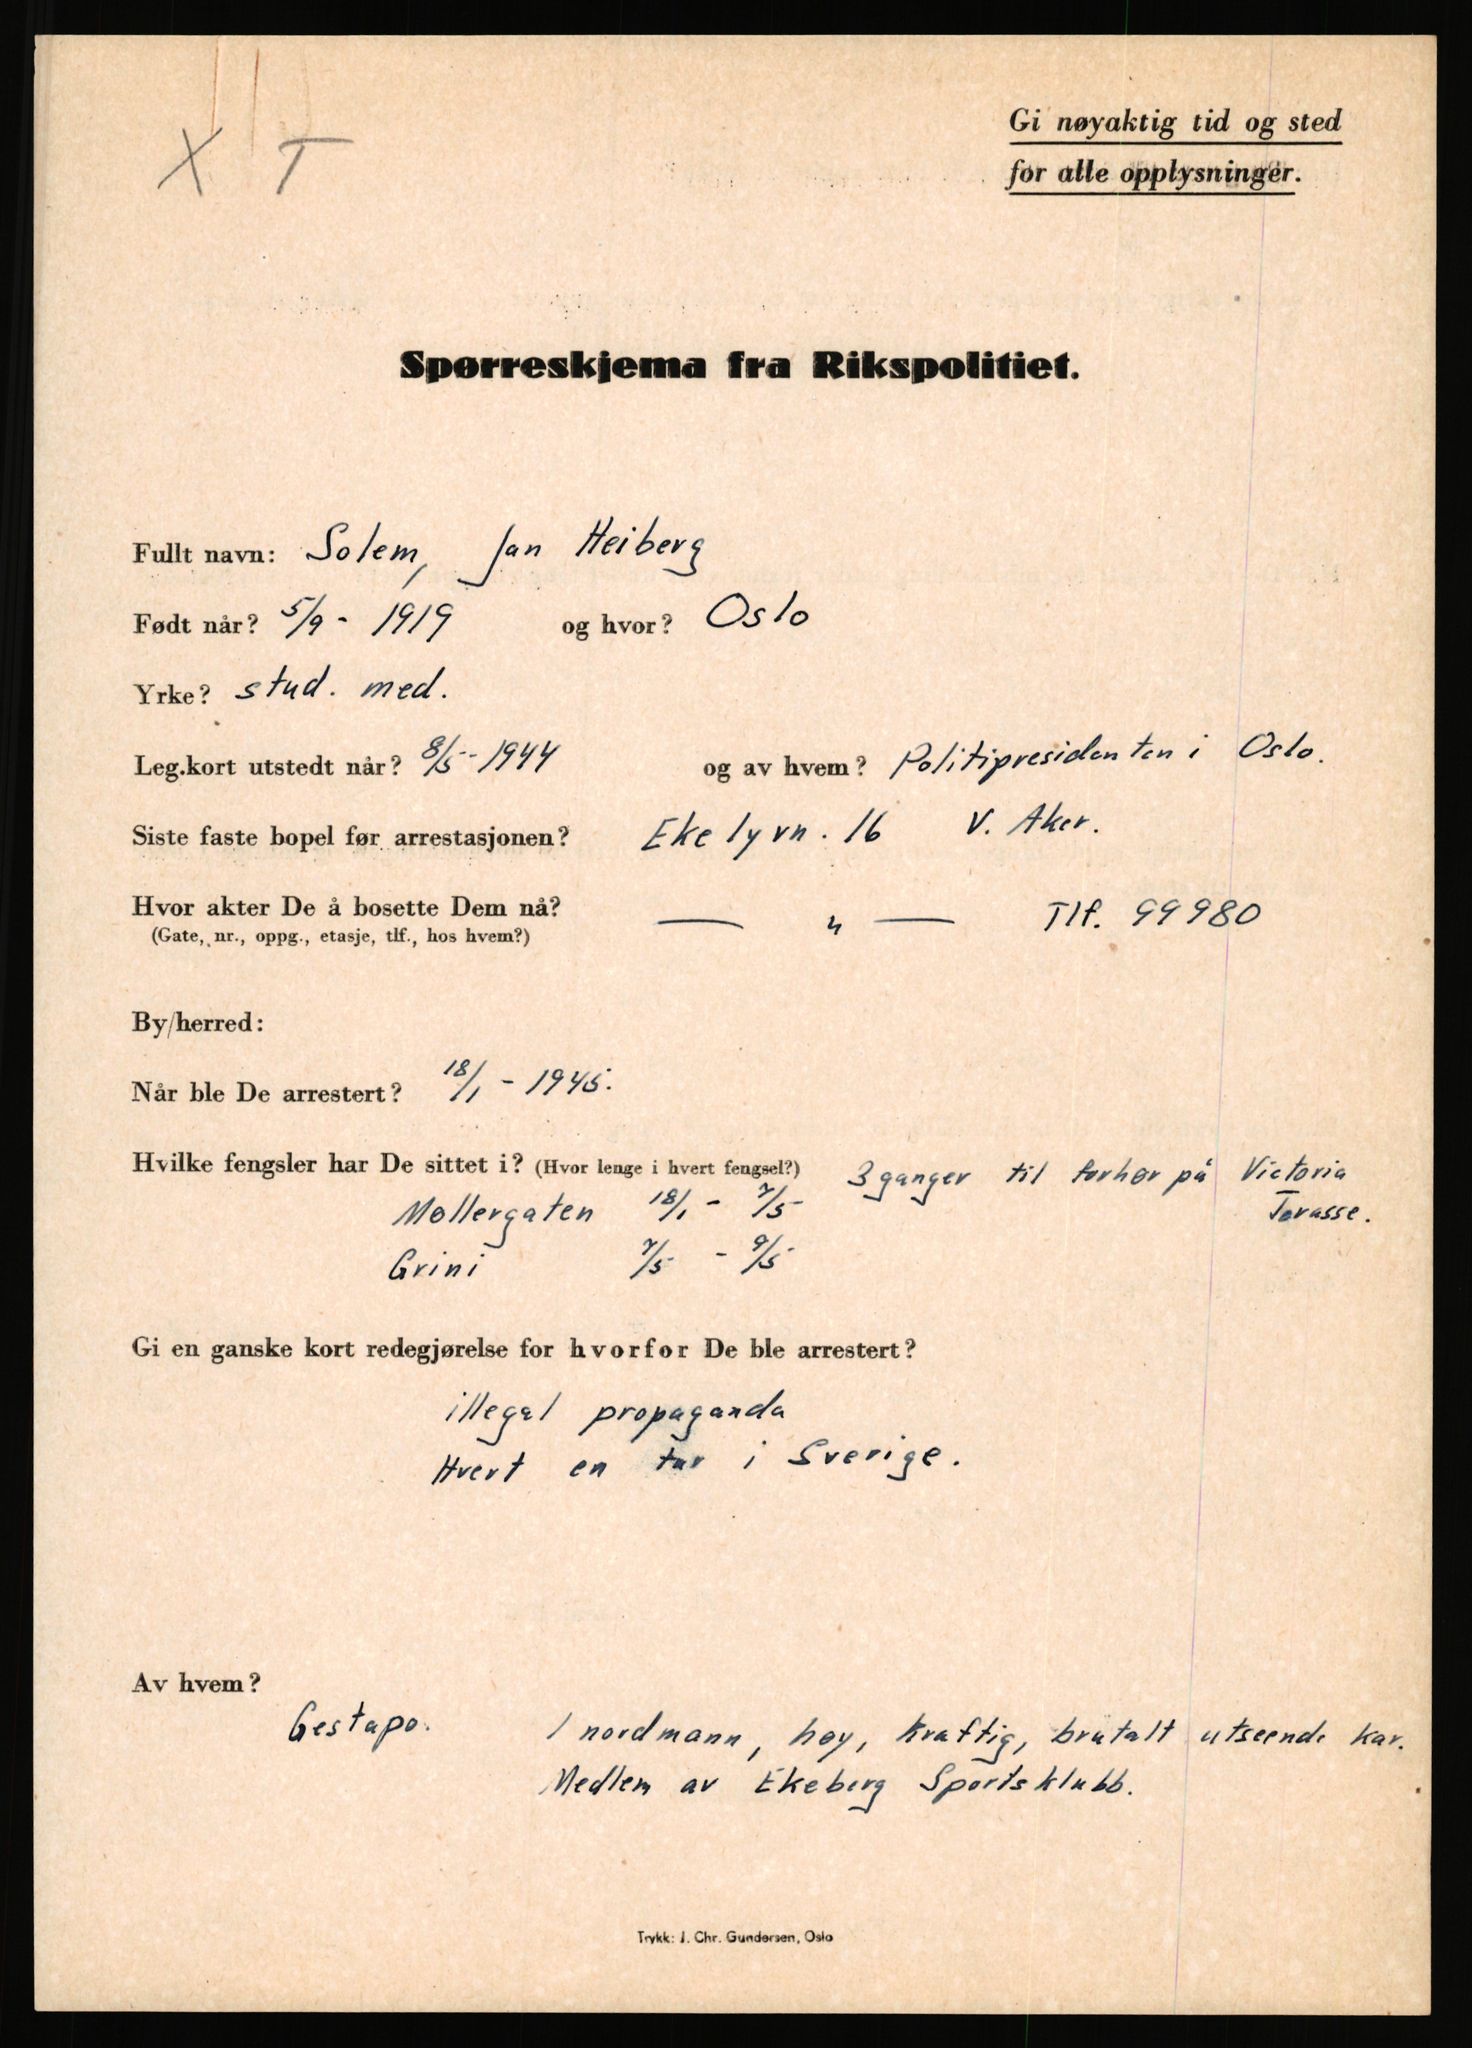 X T
Gi nøyaktig tid og sted
for alle opplysninger.
Spørreskjema fra Rikspolitiet.
Fullt navn: Solem, Jan Heiberg
Født når? 5/9 - 1919 og hvor? Oslo
Yrke? stud. med.
Leg.kort utstedt når? 8/5 - 1944 og av hvem? Politipresidenten i Oslo.
Siste faste bopel før arrestasjonen? Ekelyvn. 16 V. Aker.
Hvor akter De å bosette Dem nå? — " — Tlf. 99980
(Gate, nr., oppg., etasje, tlf., hos hvem?)
By/herred:
Når ble De arrestert? 18/1 - 1945.
Hvilke fengsler har De sittet i? (Hvor lenge i hvert fengsel?) 3 ganger til forhør på Victoria
Møllergaten 18/1 - 7/5 Terasse.
Grini 7/5 - 9/5
Gi en ganske kort redegjørelse for hvorfor De ble arrestert?
illegal propaganda
Hvert en tur i Sverige.
Av hvem?
Gestapo. 1 nordmann, høy, kraftig, brutalt utseende kar.
Medlem av Ekeberg Sportsklubb.
Trykk: J. Chr. Gundersen, Oslo